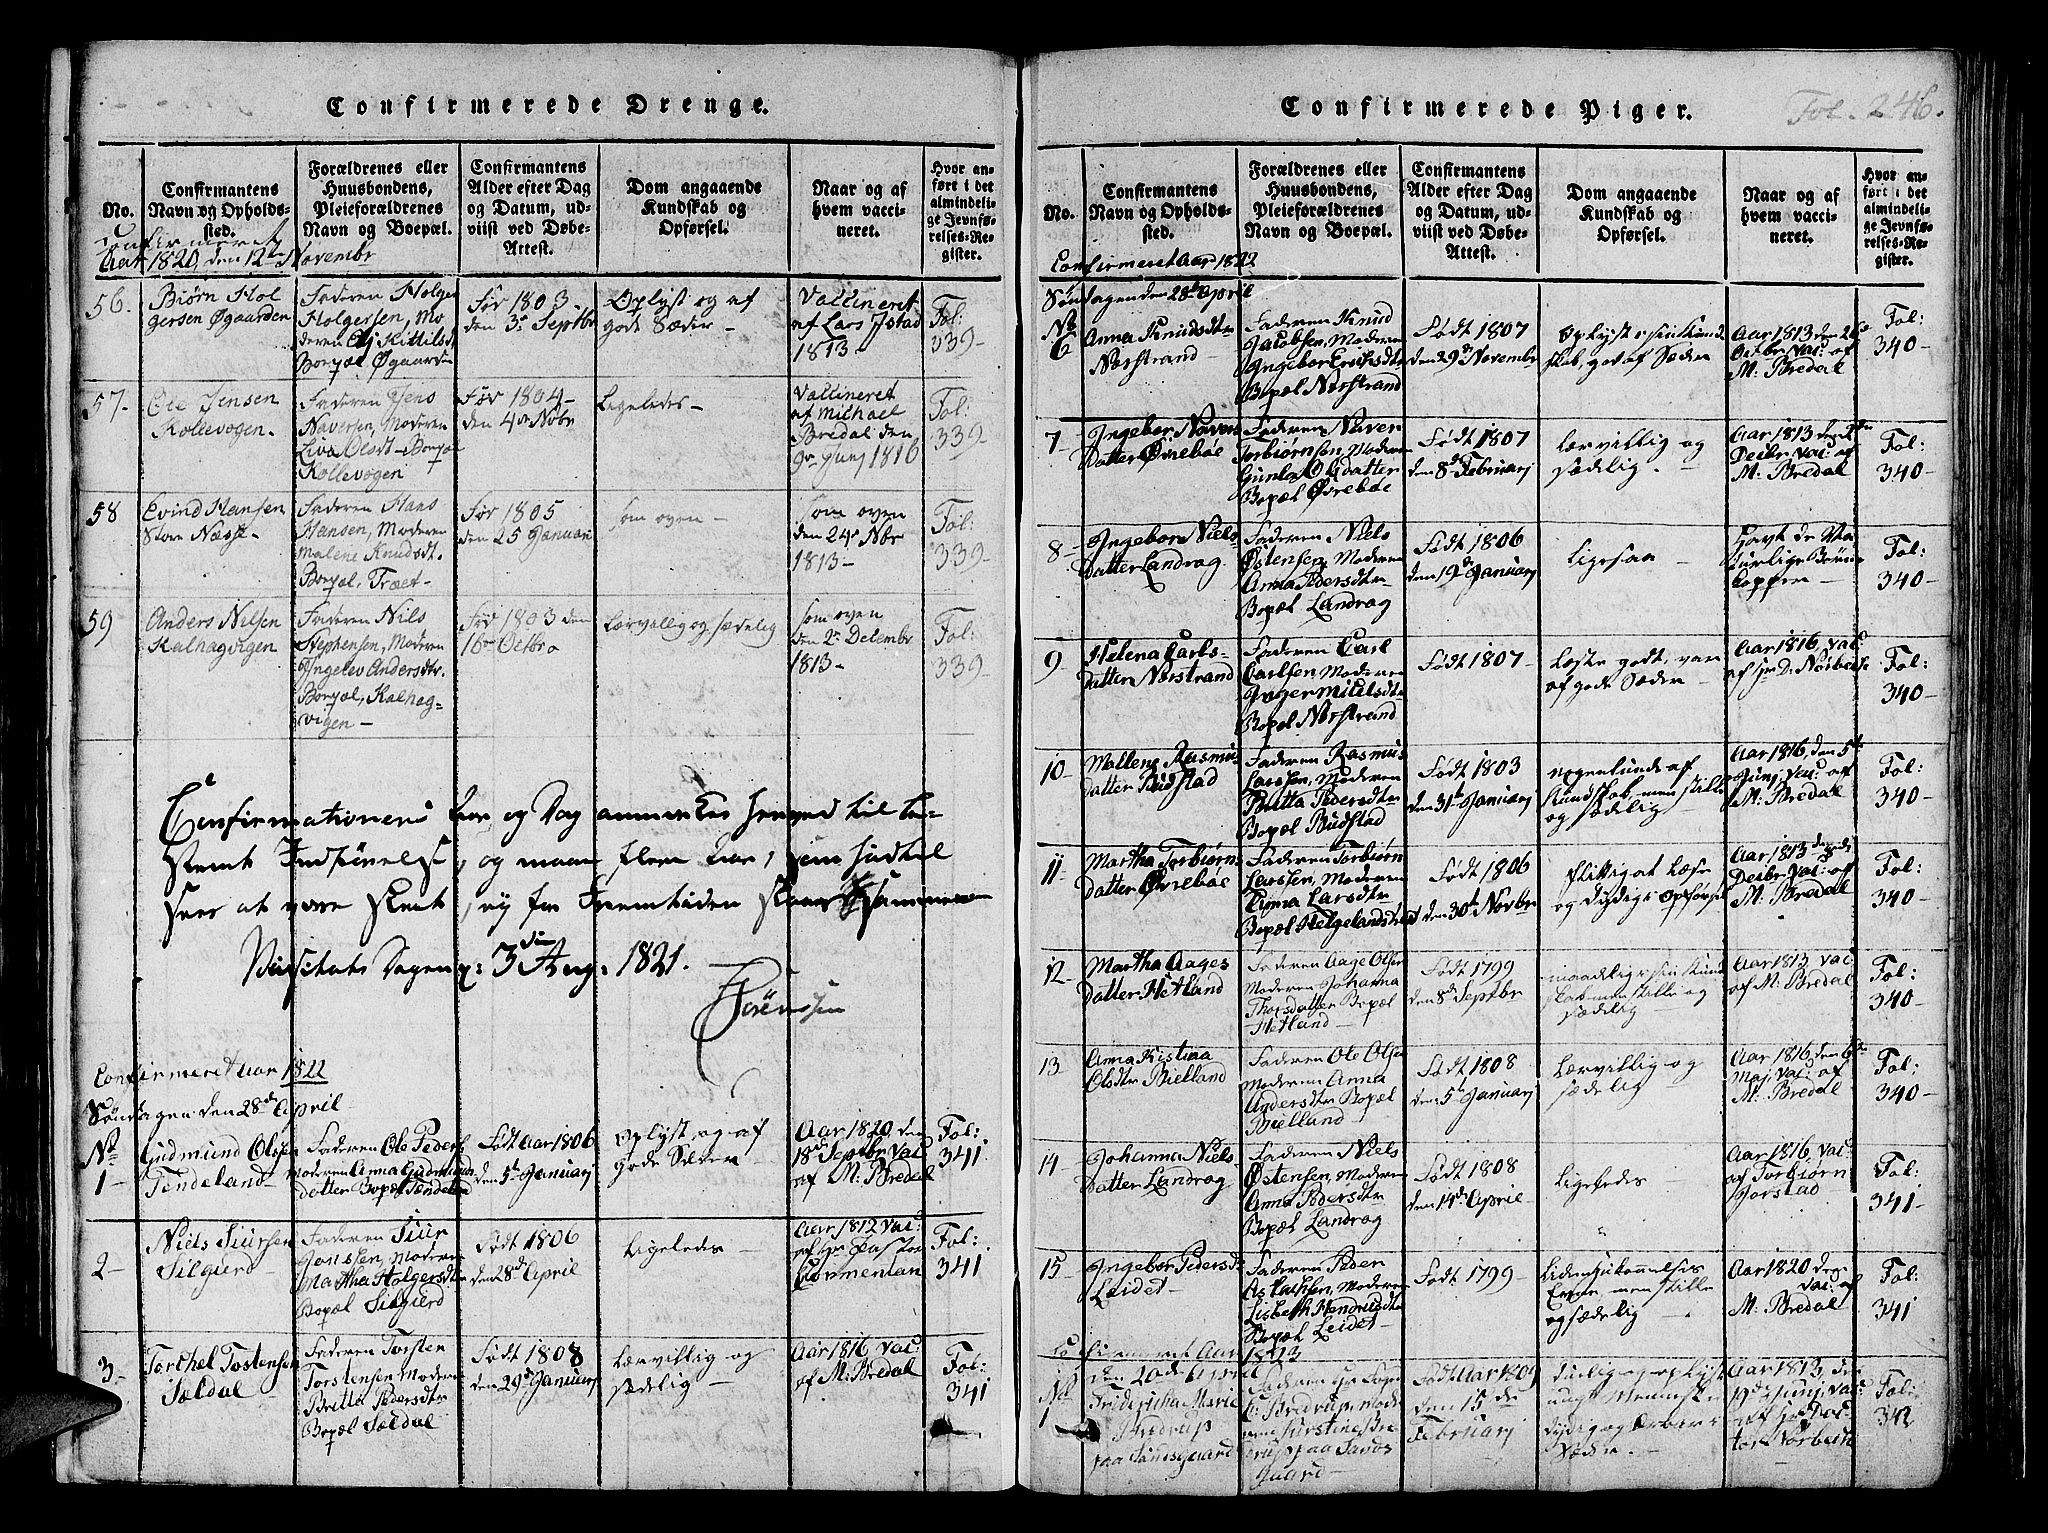 Confirmerede Drenge.
No.
Confirmantens Navn og Opholdssted.
Forældrenes eller Huusbondens, Pleieforældrenes Navn og Boepæl.
Confirmantens Alder efter Dag og Datum, udviist ved Døbe-Attest.
Dom angaaende Kundskab og Opførsel.
Naar og af hvem vaccineret.
Hvor anført i det almindelige Jevnførelses-Register.
Confirmeret
Aar 1820, den 12te Novembr
56.
Biørn Hol
gersen Øgaarden
Faderen Holger
Holgersen, Mo
deren Kittilsd
Boepæl Øgaard
Før 1803
den 3e Septbr
Oplyst og af
gode Sæder
Vaccineret
af Lars Istad
1813
Fol:
339
57
Ole Jensen
Kollevogen
Faderen Jens
Naversen, Moderen
Liva Olsdt Boepæl
Kollevogen
Før 1804
den 4de Nobr
Ligeledes
Vaccineret
af Michael
Bredal den
9de Junj 1816
Fol:
339
58
Evind Hansen
Store Næsse
Faderen Hans
Hansen, Moderen
Malene Knudsdt.
Boepæl, Træet
Før 1805
den 25 Januari
som oven
som oven
den 24de Nobr
1813
Fol:
339
59
Anders Nilsen
Kalhagvigen
Faderen Nils
Stephensen, Moderen
Ingelev Andersdtr.
Boepæl, Kalhag-
vigen
Før 1803 den
16de Octbr
Lærvillig og sædelig
som oven
den 2de Decembr
1813
Fol:
339
Confirmationens Aar og Dag anmærkes herved til be-
stemt og maae flere Aar, som hidtil
sees at være skeet, ej for Fremtiden sammen
Visitats Dagen d: 3die Aug: 1821.
Sörenssen
Confirmeret Aar 1822
Søndagen den 28de April
No
1
Gudmund Olsen
Tendeland
Faderen Ole Peders
Moderen Anna Gudmuns
datter Boepæl Tendelan
Født Aar 1806
den 5te Januarj
Oplyst og af
gode Sæder
Aar 1820, den
18de Septbr Vac
af M. Bredal
Fol:
341
2
Niels Siursen
Silgierd
Faderen Siur
Moderen
Martha Holgersdtr
Bopæl Silgierd
Født 1806
den 28de April
Ligeledes
Aar 1812 Vac:
af Hr Pastor
Cormentan
Fol:
341
3
Torchel Tostensen
Sældal
Faderen Torsten
Torstensen, Moder
Britta Pedersdtr
Bopæl Sældal
Født 1808
den 29de Januarj
Lærvillig og
sædelig
Aar 1816 Vac:
af M: Bredal
Fol:
341
Confirmerede Piger.
Fol. 246.
No.
Confirmantens Navn og Opholdssted.
Forældrenes eller Huusbondens, Pleieforældrenes Navn og Boepæl.
Confirmantens Alder efter Dag og Datum, udviist ved Døbe-Attest.
Dom angaaende Kundskab og Opførsel.
Naar og af hvem vaccineret.
Hvor anført i det almindelige Jevnførelses-Register.
Confirmeret Aar 1822
Søndagen den 28de April
No
6
Anna Knudsdtr
Nørstrand
Faderen Knud
Jacobsen, Moderen
Ingebor Ericksdtr
Bopæl Nørstrand
Født 1807
den 29de Novembr
Oplyst i sin Kund
skab, god af Sæder
Aar 1813 den
Decbr Vac: af
M: Bredal
Fol:
340
7
Ingebor Naver
datter Øvrebøe
Faderen Naver
Torbiørnsen, Moderen
Gunla Olsdatter
Bopæl Øvrebøe
Født 1807
den 8de Februarj
Lærvillig og
sædelig
Aar 1813 den
Decbr Vac: af
M: Bredal
Fol:
340
8
Ingebor Niels-
datter Landrag
Faderen Niels
Østensen, Moderen
Anna Pedersdtr
Bopæl Landrag
Født 1806
den 19de Januarj
Ligesaa
Havt de Na
turlige Børne
Copper
Fol:
340
9
Helena Carls-
datter Nørstrand
Faderen Carl
Carlsen, Moderen
Inger Mickelsdtr
Bopæl Nørstrand
Født 1807
Læste godt, var
af gode Sæder
Aar 1816, Vac
af Hr D: Norbech
Fol:
340
10
Mallene Rasmus
datter Budstad
Faderen Rasmus
Larssen, Moderen
Britta Pedersdtr
Bopæl Budstad
Født 1803
den 31te Januarj
nogenlunde af
Kundskab, men stille
og sædelig
Aar 1816, den 5te
Junj, Vac: af
M. Bredal
Fol:
340
11
Martha Torbiørns
datter Øvrebøe
Faderen Torbiørn
Larssen, Moderen
Anna Larsdtr
Bopæl Helgeland
Født 1806
den 30te Novbr
Flittig at Læse
og dydig i Opførsel
Aar 1813 den
Decbr Vac: af
M: Bredal
Fol:
340
12
Martha Aages
datter Hetland
Faderen Aage Olsen
Moderen Johanna
Thorsdatter Bopæl
Hetland
Født 1799
den 8de Septbr
maadelig i sin Kund
skab men stille og
sædelig
Aar 1813, Vac
af M: Bredal
Fol:
340
13
Anna Kistina
Olsdtr Bielland
Faderen Ole Olsen
Moderen Anna
Andersdtr Bopæl
Bielland
Født 1808
den 5te Januarj
Lærvillig og
sædelig
Aar 1816, den 6te
Maj, Vac: af
M: Bredal
Fol:
340
14
Johanna Niels-
datter Landrag
Faderen Niels
Østensen, Moderen
Anna Pedersdtr
Bopæl Landrag
Født 1808
den 14de April
Ligeledes
Aar 1816, Vac:
af Torbiørn
Jorstad
Fol:
341
15
Ingebor Pedersdt
Leidet
Faderen Peder
Aslachsen, Moderen
Lisbeth Hendricsdtr
Bopæl Leidet
Født 1799
Liden i
Evne, men stille
og sædelig
Aar 1820 den
Vac: af
M: Bredal
Fol:
341
Confirmeret Aar 1823
den 20de April
No
1
Fridericha Marie
Bredrup
paa Sandsgaard
Faderen Hr
Bredrup, Mode
ren Kirstine Bre
drup paa Sands
gaard
Født Aar 1809
den 15 de
Februarj
duelig og oplyst
ungt Menneske
dydig og ærbar i
Sæder
Aar 1813, den
19de Junj, Vac:
af Hr Doc
tor Norbech
Fol:
342